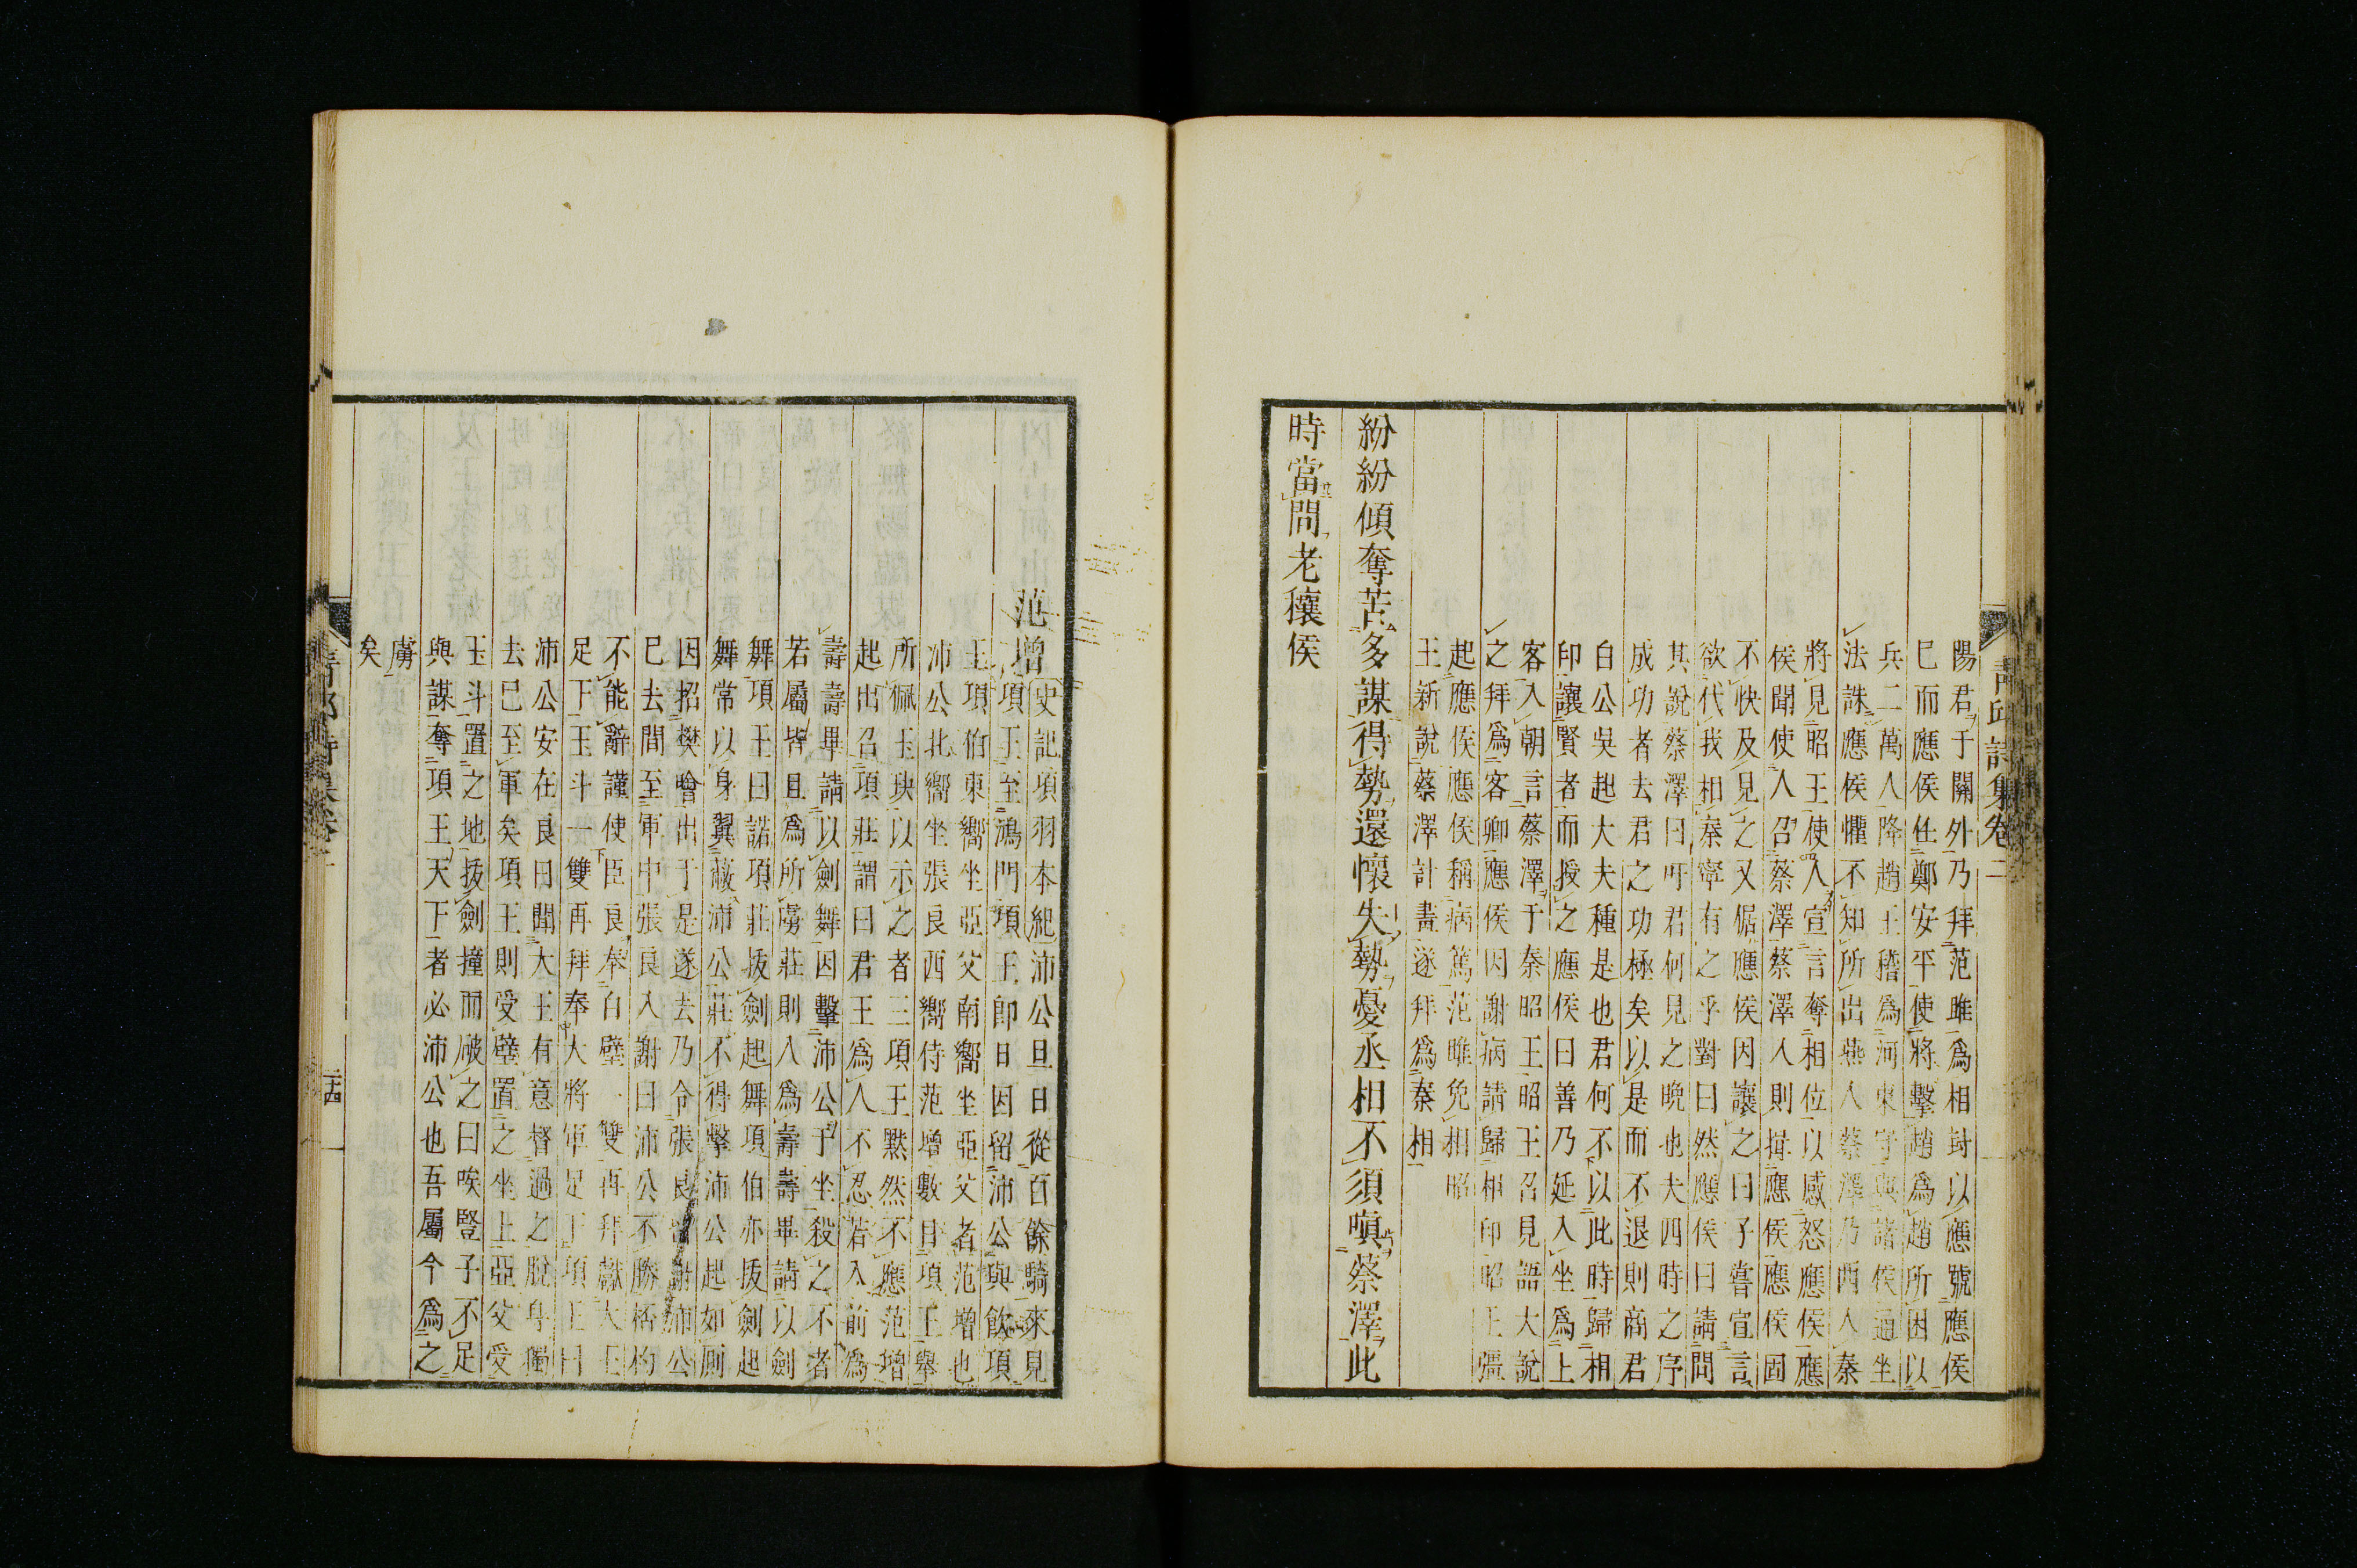 青邱詩集卷二
陽君于關外乃拜范雎爲相封以應號應侯
已而應侯任鄭安平使將擊趙爲趙所困以
兵二萬人降趙王稽爲河東守與諸侯通坐
法誅應侯懼不知所出燕人蔡澤乃西入秦
將見昭王使人宣言奪相位以感怒應侯應
侯聞使人召蔡澤蔡澤入則揖應侯應侯固
不快及見之又倨應侯因讓之曰子嘗宣言
欲代我相秦寧有之乎對曰然應侯曰請問
其說蔡澤曰吁君何見之晚也夫四時之序
成功者去君之功極矣以是而不退則商君
白公吳起大夫種是也君何不以此時歸相
印讓賢者而授之應侯曰善乃延入坐爲上
客入朝言蔡澤于秦昭王昭王召見語大說
之拜爲客卿應侯因謝病請歸相印昭王彊
起應侯應侯稱病篤范雎免相昭
王新說蔡澤計畫遂拜爲秦相
紛紛傾奪苦多謀得勢還懷失勢憂丞相不須嗔蔡澤此
時當問老穰侯
范增史記項羽本紀沛公旦日從百餘騎來見
項王至鴻門項王卽日因留沛公與飲項
王項伯東嚮坐亞父南嚮坐亞父者范增也
沛公北嚮坐張良西嚮侍范增數目項王舉
所佩玉玦以示之者三項王黙然不應范增
起出召項莊謂曰君王爲人不忍若入前爲
壽壽畢請以劍舞因擊沛公于坐殺之不者
若屬皆且爲所虜莊則入爲壽壽畢請以劍
舞項王曰諾項莊拔劍起舞項伯亦拔劍起
舞常以身翼蔽沛公莊不得擊沛公起如廁
因招樊噲出于是遂去乃令張良留謝沛公
已去間至軍中張良入謝曰沛公不勝桮杓
不能辭謹使臣良奉白璧一雙再拜獻大王
足下玉斗一雙再拜奉大將軍足下項王曰
沛公安在良曰聞大王有意督過之脫身獨
去已至軍矣項王則受璧置之坐上亞父受
玉斗置之地拔劍撞而破之曰唉豎子不足
與謀奪項王天下者必沛公也吾屬今爲之
虜
矣